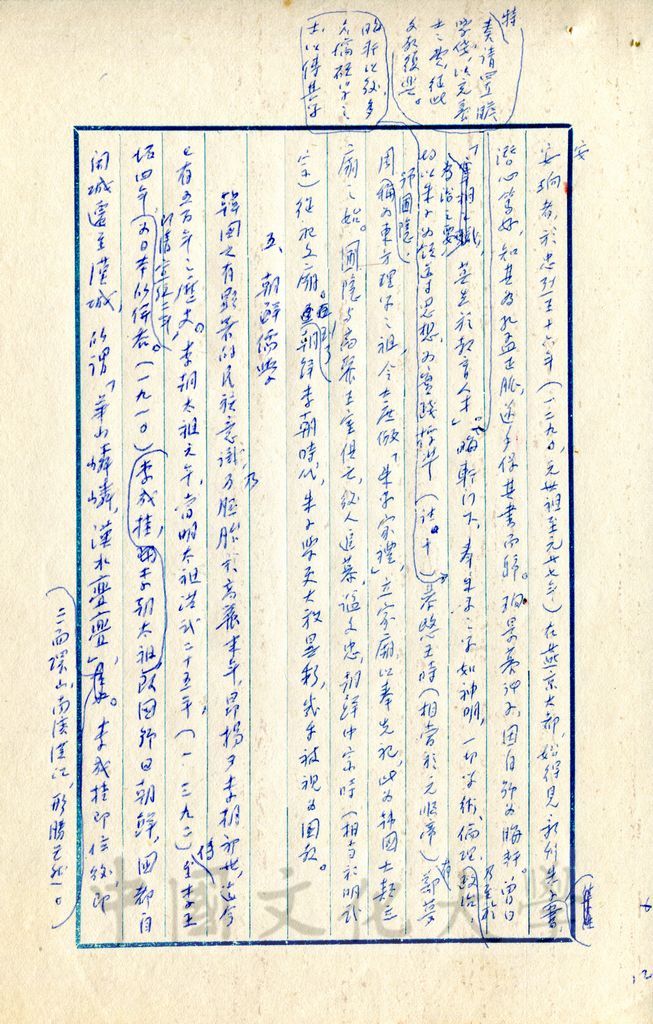 特
奏請置贍
學錢,以充養
士之費,從此
文教復興。
晦軒以後多
名儒碩學之
士以傳其學
安
安珦者,於忠烈王十六年(一二九〇,元世祖至元廿七年)在燕京大都,始得見新刊朱子書
集註
潛心篤好,知其為孔孟正脈,遂手保其書而歸。珦景慕神子,因自號為晦軒。曾曰
「宰相之職,莫先於教育人才」。晦軒門下,奉朱子之學如神明,一切學術、倫理、政治,
考治之要
乃至於
均以朱子為領導思想,為實踐哲學(註十)恭愍王時(相當於元順帝)鄭夢
有
號圃隱,
周稱為東方理學之祖,令士庶倣「朱子家禮」立家廟以奉先祀,此為韓國士類立
廟之始。圃隱與高麗王室俱亡,後人追慕,謚文忠,朝鮮中宗時(相當於明武
宗)從祀文廟。朝鮮李朝時代,朱子學更大放異彩,幾乎被視為國教。
再到了
五、朝鮮儒學
韓國之有顯著的民族意識乃胚胎於高麗末年,昂揚於李朝初世,迄今
乃
已有五百年之歷史。李朝太祖元年,當明太祖洪武二十五年,(一三九二)至李王
傳
坧四年為日本所併吞。(一九一〇)李成桂,即李朝太祖改國號曰朝鮮,國都自
開城遷至漢城,所謂「華山嶙嶙,漢水亹亹」。李成桂即位後,即
(三面環山,南濱漢江,形勝天然。)
中國文化大學